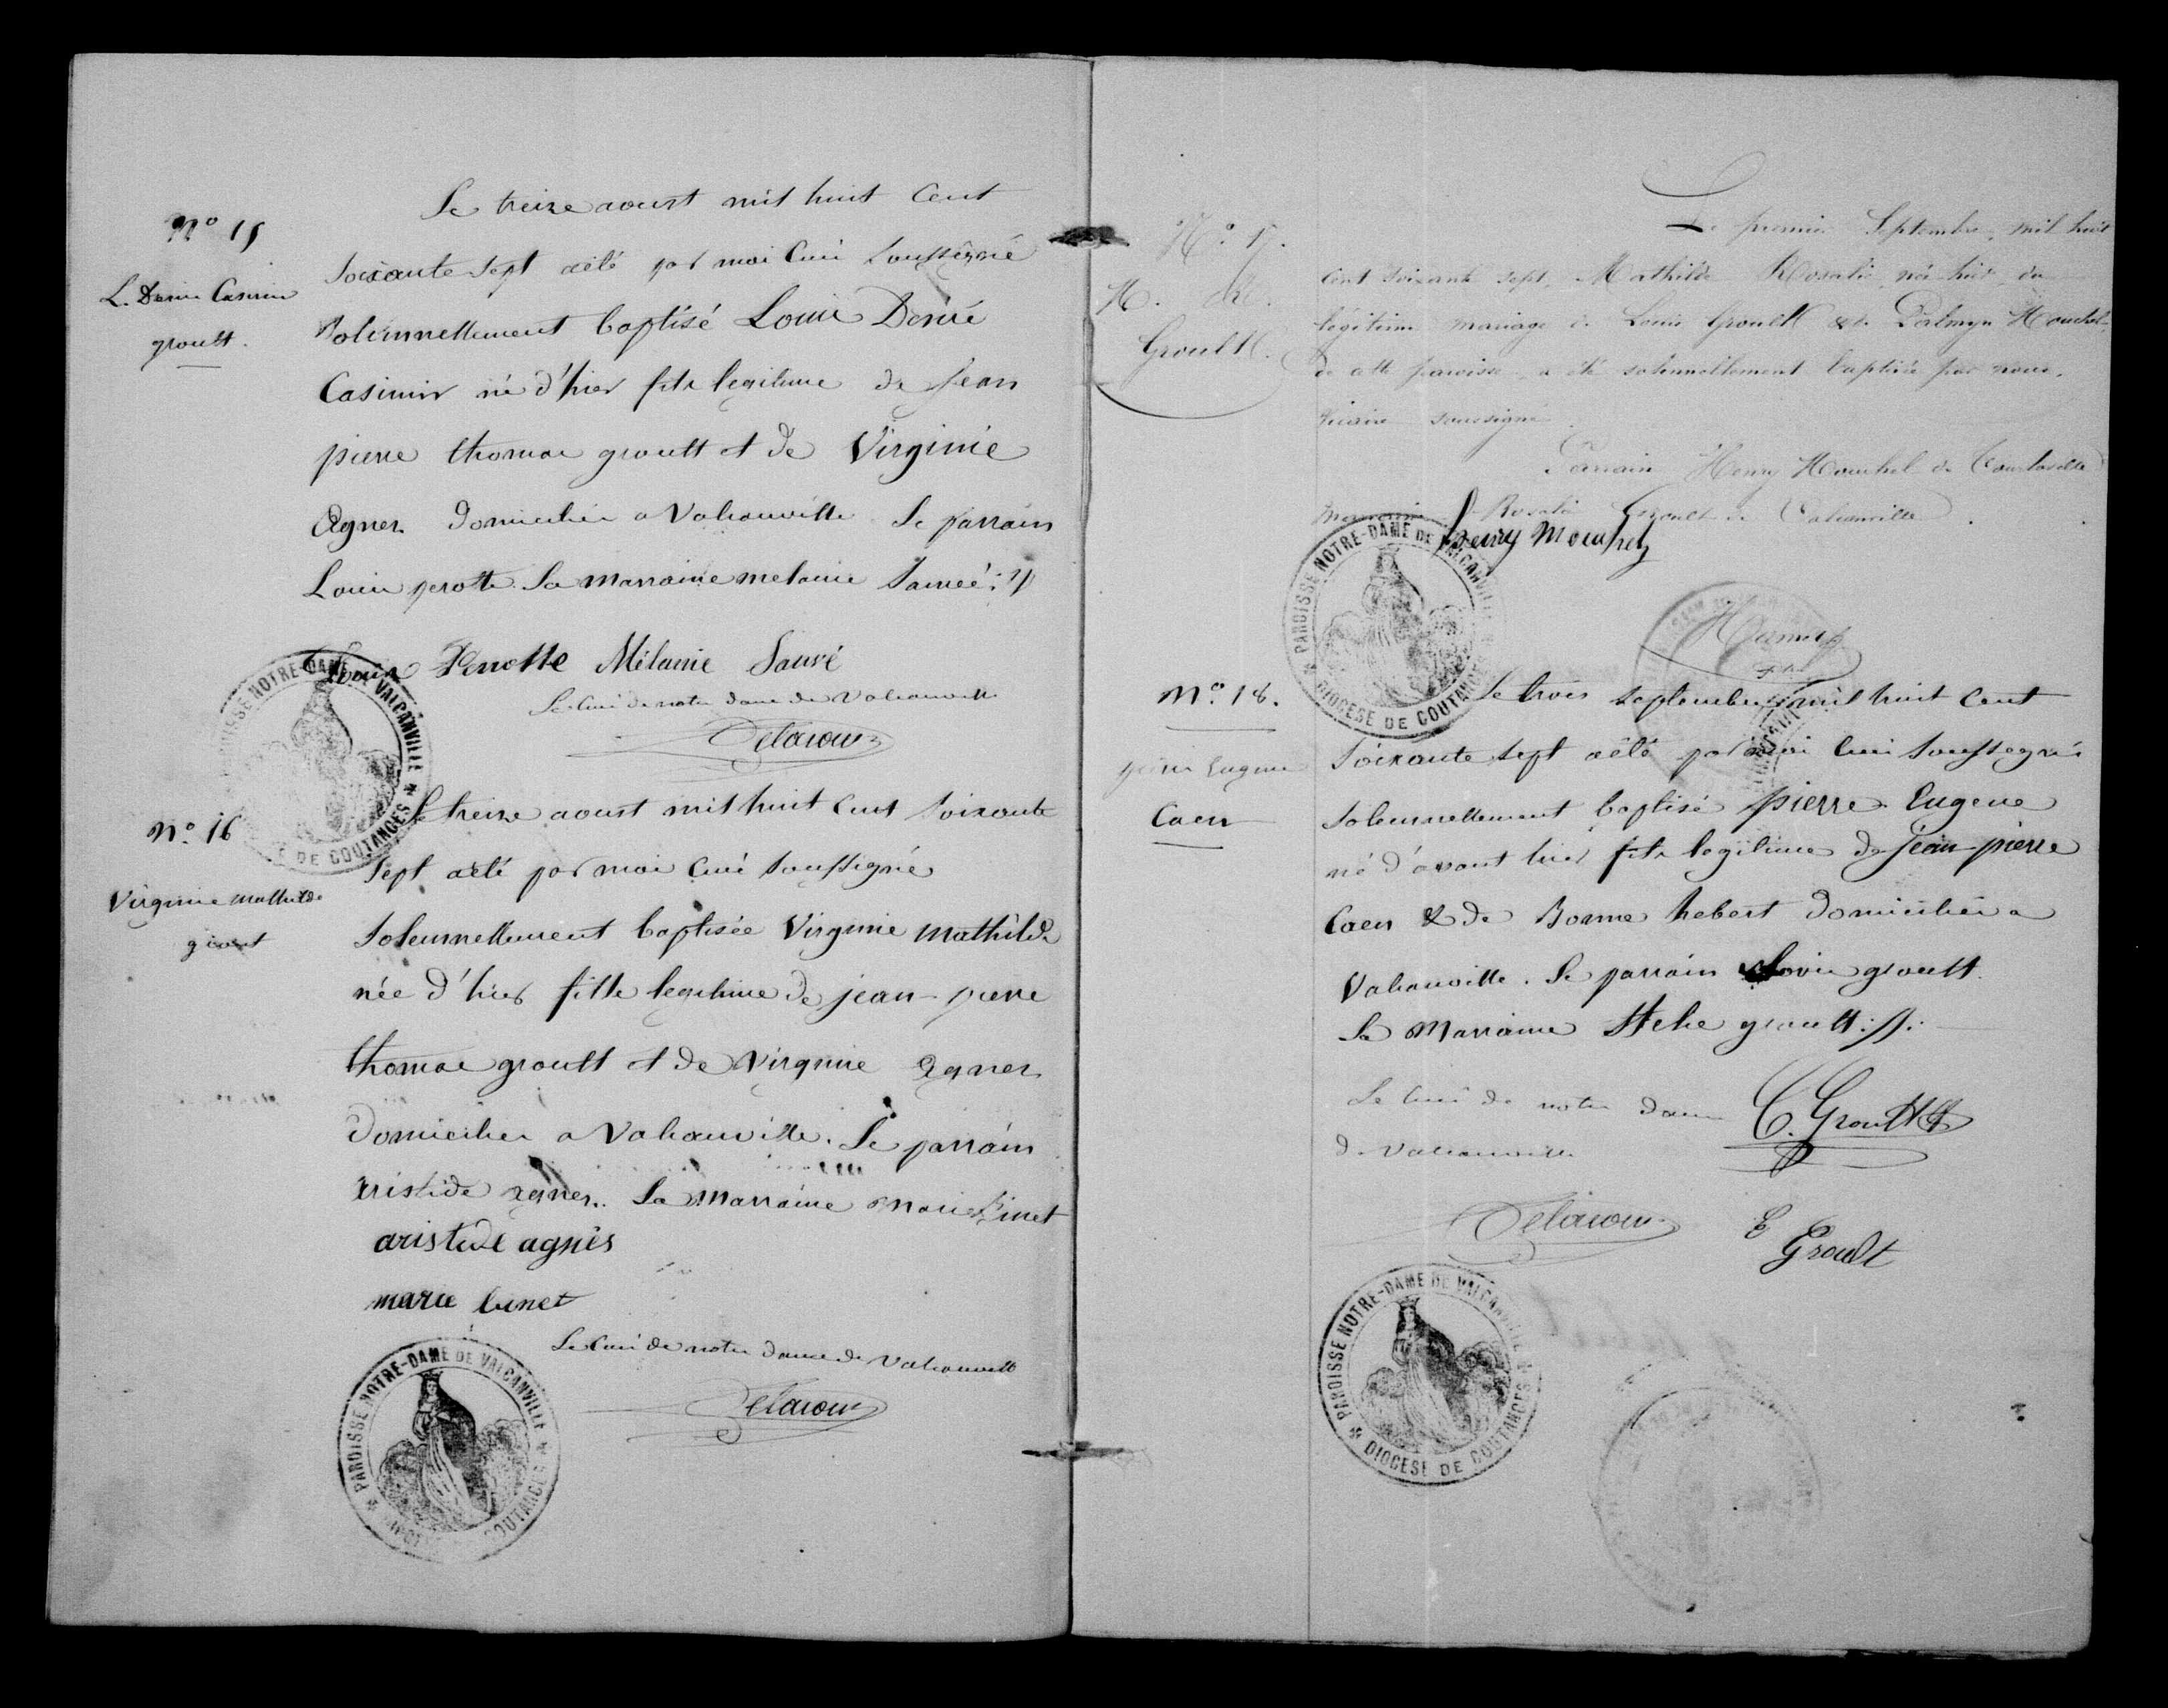 No 15
L. Desiré Casimir
groult.
Le treize aoust mil huit cent
soixante sept aété par moi Curé soussigné
solennellement baptisé Louis Desiré
Casimir né d'hier fils legitime de jean
pierre thomas groult et de Virginie
Agnes domiciliés a Valcanville Le parrain
Louis perotte. La marraine melanie Sauvé ://
Louis Perrotte Mélanie Sauvé
Le Curé de notre dame de Valcanville
Delarour
PAROISSE NOTRE-DAME DE VALCANVILLE * DE COUTANCES
No. 16
Virginie mathilde
groult
Le treize aoust mil huit cent soixante
sept aété par moi Curé soussigné
solennellement baptisée Virginie mathilde
née d'hier fille legitime de jean-pierre
thomas groult et de Virginie agnes
domiciliés a Valcanville. Le parrain
aristide agnes. La Marraine marie binet
aristide agnès
marie binet
Le Curé de notre dame de Valcanville
Delarour
* PAROISSE NOTRE-DAME DE VALCANVILLE * COUTANCES
No. 17.
M. R.
Groult.
Le premier Septembre, mil huit
cent soixante sept, Mathilde Rosalie, née hier, du
légitime mariage de Louis Groult & de Palmyre Mouchel,
de cette paroisse, a été solennellement baptisée par nous,
vicaire soussigné.
Parrain Henry Mouchel de
marraine Rosalie Groult de Valcanville.
henry Mouchel
PAROISSE NOTRE-DAME DE VALCANVILLE * DIOCESE DE COUTANCES
No. 18.
pierre Eugene
Caen
Le trois septembre mil huit cent
soixante sept aété par moi Curé soussigné
solennellement baptisé pierre Eugene
né d'avant hier fils legitime de jean-pierre
Caen & de Bonne hebert domiciliés a
Valcanville. Le parrain Louis groult.
La Marraine groult ://:
Le Curé de notre dame
de Valcanville
C. Groult
Delarour
E Groult
* PAROISSE NOTRE-DAME DE VALCANVILLE * DIOCESE DE COUTANCES